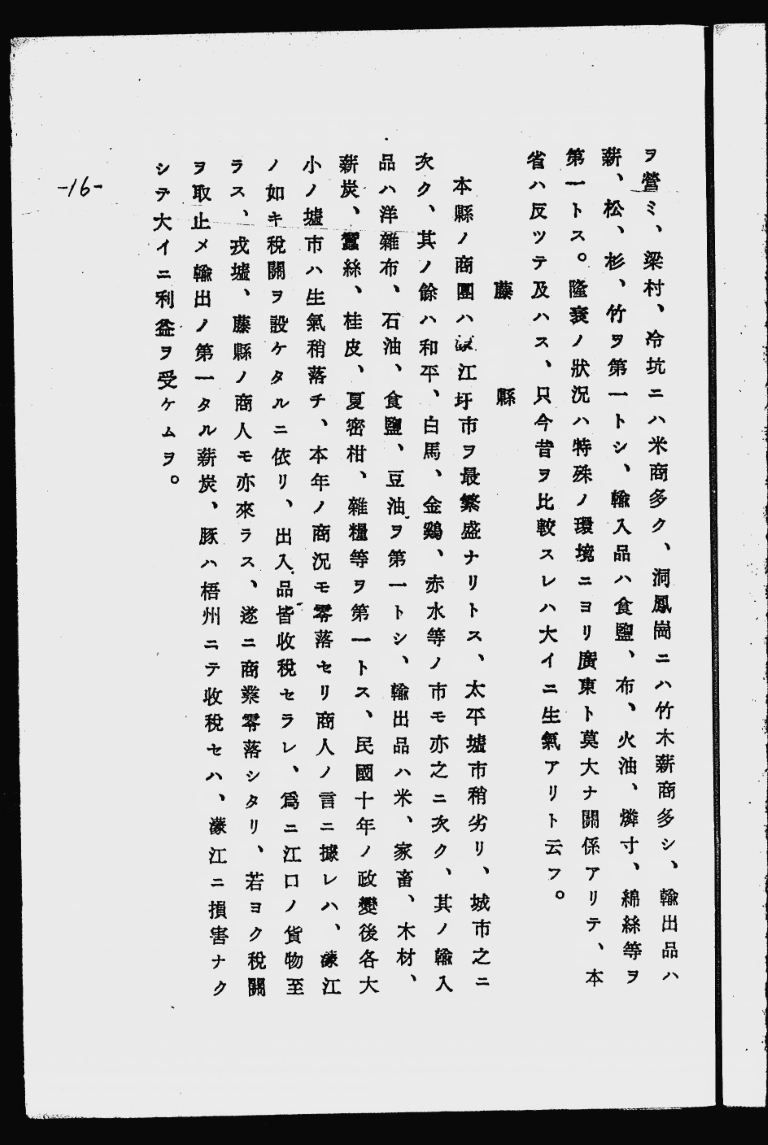 ヲ營ミ、梁村、冷坑ニハ米商多ク、洞鳳崗ニハ竹木薪商多シ、輸出品ハ
薪、松、杉、竹ヲ第一トシ、輸入品ハ食鹽、布、火油、燐寸、綿絲等ヲ
第一トス。隆衰ノ狀況ハ特殊ノ環境ニヨリ廣東ト莫大ナ關係アリテ、本
省ハ反ツテ及ハス、只今昔ヲ比較スレハ大イニ生氣アリト云フ。
藤縣
本縣ノ商團ハ濛江圩市ヲ最繁盛ナリトス、太平墟市稍劣リ、城市之ニ
次ク、其ノ餘ハ和平、白馬、金鷄、赤水等ノ市モ亦之ニ次ク、其ノ輸入
品ハ洋雜布、石油、食鹽、豆油ヲ第一トシ、輸出品ハ米、家畜、木材、
薪炭、蠶絲、桂皮、夏密柑、雜糧等ヲ第一トス、民國十年ノ政變後各大
小ノ墟市ハ生氣稍落チ、本年ノ商況モ零落セリ商人ノ言ニ據レハ、濛江
ノ如キ稅關ヲ設ケタルニ依リ、出入品皆收稅セラレ、爲ニ江口ノ貨物至
ラス、戎墟、藤縣ノ商人モ亦來ラス、遂ニ商業零落シタリ、若ヨク稅關
ヲ取止メ輸出ノ第一タル薪炭、豚ハ梧州ニテ收稅セハ、濛江ニ損害ナク
シテ大イニ利益ヲ受ケムヲ。
-16-